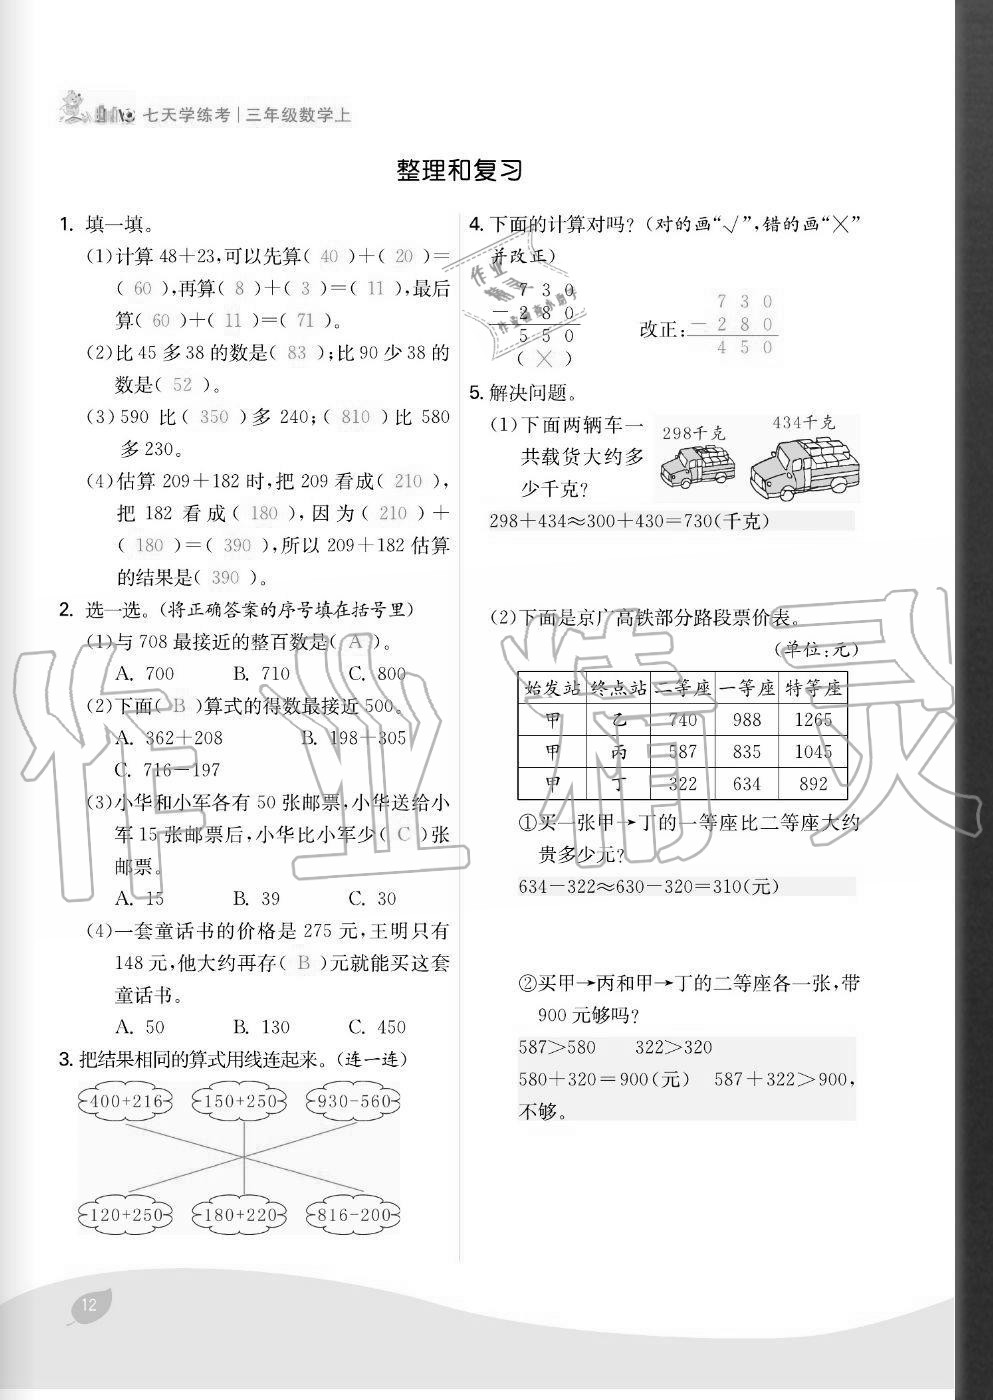 七天学练考|三年级数学上
整理和复习
1. 填一填。
(1)计算48+23,可以先算( 40 )+( 20 )=
( 60 ),再算( 8 )+( 3 )=( 11 ),最后
算( 60 )+( 11 )=( 71 )。
(2)比45多38的数是( 83 );比90少38的
数是( 52 )。
(3)590 比( 350 )多 240;( 810 )比 580
多230。
(4)估算 209+182 时,把 209 看成( 210 ),
把 182 看成( 180 ),因为( 210 )+
( 180 )=( 390 ),所以 209+182 估算
的结果是( 390 )。
2. 选一选。(将正确答案的序号填在括号里)
(1)与 708 最接近的整百数是( A )。
A. 700 B. 710 C. 800
(2)下面( B )算式的得数最接近500。
A. 362+208 B. 198+305
C. 716-197
(3)小华和小军各有 50 张邮票,小华送给小
军 15 张邮票后,小华比小军少( C )张
邮票。
A. 15 B. 39 C. 30
(4)一套童话书的价格是 275 元,王明只有
148 元,他大约再存( B )元就能买这套
童话书。
A. 50 B. 130 C. 450
3. 把结果相同的算式用线连起来。(连一连)
400+216 150+250 930-560
120+250 180+220 816-200
4. 下面的计算对吗?(对的画“√”,错的画“×”
并改正)
7 3 0
- 2 8 0
5 5 0
( × )
改正:
7 3 0
- 2 8 0
4 5 0
5. 解决问题。
(1)下面两辆车一
共载货大约多
少千克?
298千克 434千克
298+434≈300+430=730(千克)
(2)下面是京广高铁部分路段票价表。
(单位:元)
始发站 终点站 二等座 一等座 特等座
甲 乙 740 988 1265
甲 丙 587 835 1045
甲 丁 322 634 892
①买一张甲→丁的一等座比二等座大约
贵多少元?
634-322≈630-320=310(元)
②买甲→丙和甲→丁的二等座各一张,带
900 元够吗?
587>580 322>320
580+320=900(元) 587+322>900,
不够。
12
作业精灵